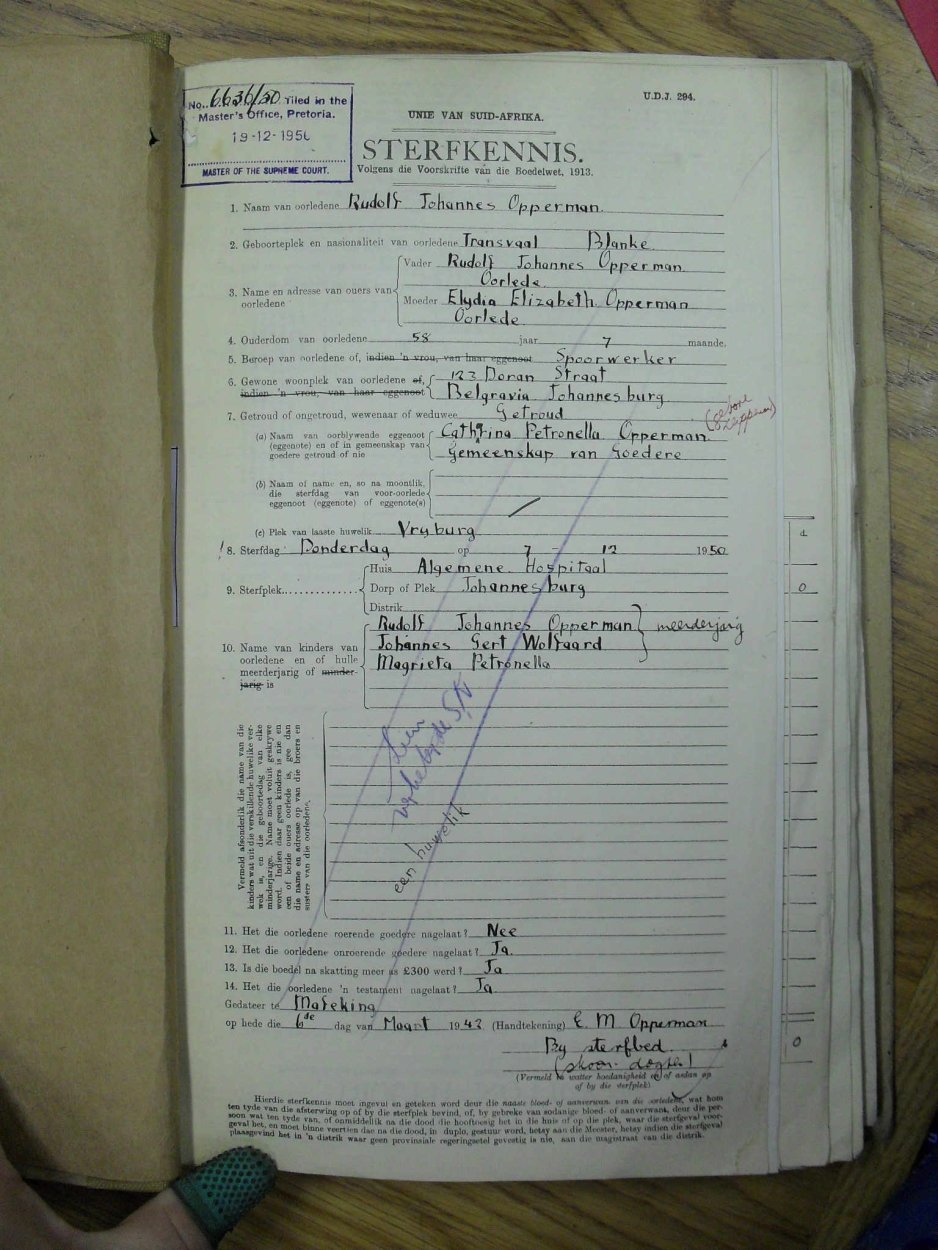 No. 6636/50 Filed in the
Master's Office, Pretoria.
19-12-1950
MASTER OF THE SUPREME COURT.
U.D.J. 294.
UNIE VAN SUID-AFRIKA.
STERFKENNIS.
Volgens die Voorskrifte van die Boedelwet, 1913.
1. Naam van oorledene Rudolf Johannes Opperman.
2. Geboorteplek en nasionaliteit van oorledene Transvaal Blanke
3. Name en adresse van ouers van oorledene
Vader Rudolf Johannes Opperman
Oorlede.
Moeder Elydia Elizabeth Opperman
Oorlede
4. Ouderdom van oorledene 58 jaar 7 maande.
5. Beroep van oorledene of, indien 'n vrou, van haar eggenoot Spoorwerker
6. Gewone woonplek van oorledene of, indien 'n vrou, van haar eggenoot
123 Doran Straat
Belgravia Johannesburg
7. Getroud of ongetroud, wewenaar of weduwee Getroud
(gebore
(a) Naam van oorblywende eggenoot (eggenote) en of in gemeenskap van goedere getroud of nie
Cathrina Petronella Opperman.
Gemeenskap van Goedere
(b) Naam of name en, so na moontlik, die sterfdag van voor-oorlede eggenoot (eggenote) of eggenote(s)
(c) Plek van laaste huwelik Vryburg
8. Sterfdag Donderdag op 7 - 12 1950
9. Sterfplek
Huis Algemene Hospitaal
Dorp of Plek Johannesburg
Distrik
10. Name van kinders van oorledene en of hulle meerderjarig of minderjarig is
Rudolf Johannes Opperman
Johannes Gert Wolfaard
Magrieta Petronella
meerderjarig
Vermeld afsonderlik die name van die
kinders wat uit die verskillende huwelike verwek
is, en die geboortedag van elke
minderjarige. Name moet voluit geskrywe
word. Indien daar geen kinders is nie en
een of beide ouers oorlede is, gee dan
die name en adresse op van die broers en
susters van die oorledene.
een huwelik
11. Het die oorledene roerende goedere nagelaat? Nee
12. Het die oorledene onroerende goedere nagelaat? Ja.
13. Is die boedel na skatting meer as £300 werd? Ja
14. Het die oorledene 'n testament nagelaat? Ja.
Gedateer te Mafeking
op hede die 6de dag van Maart 1942 (Handtekening) E. M Opperman
By sterfbed.
(skoon dogter)
(Vermeld in watter hoedanigheid en of aldan op
of by die sterfplek)
Hierdie sterfkennis moet ingevul en geteken word deur die naaste bloed- of aanverwant van die oorledene, wat hom
ten tyde van die afsterwing op of by die sterfplek bevind, of, by gebreke van sodanige bloed- of aanverwant, deur die persoon
wat ten tyde van, of onmiddelik na die dood die hooftoesig het in die huis of op die plek, waar die sterfgeval voorgeval
het, en moet binne veertien dae na die dood, in duplo, gestuur word, hetsy aan die Meester, hetsy indien die sterfgeval
plaasgevind het in 'n distrik waar geen provinsiale regeringsetel gevestig is nie, aan die magistraat van die distrik.